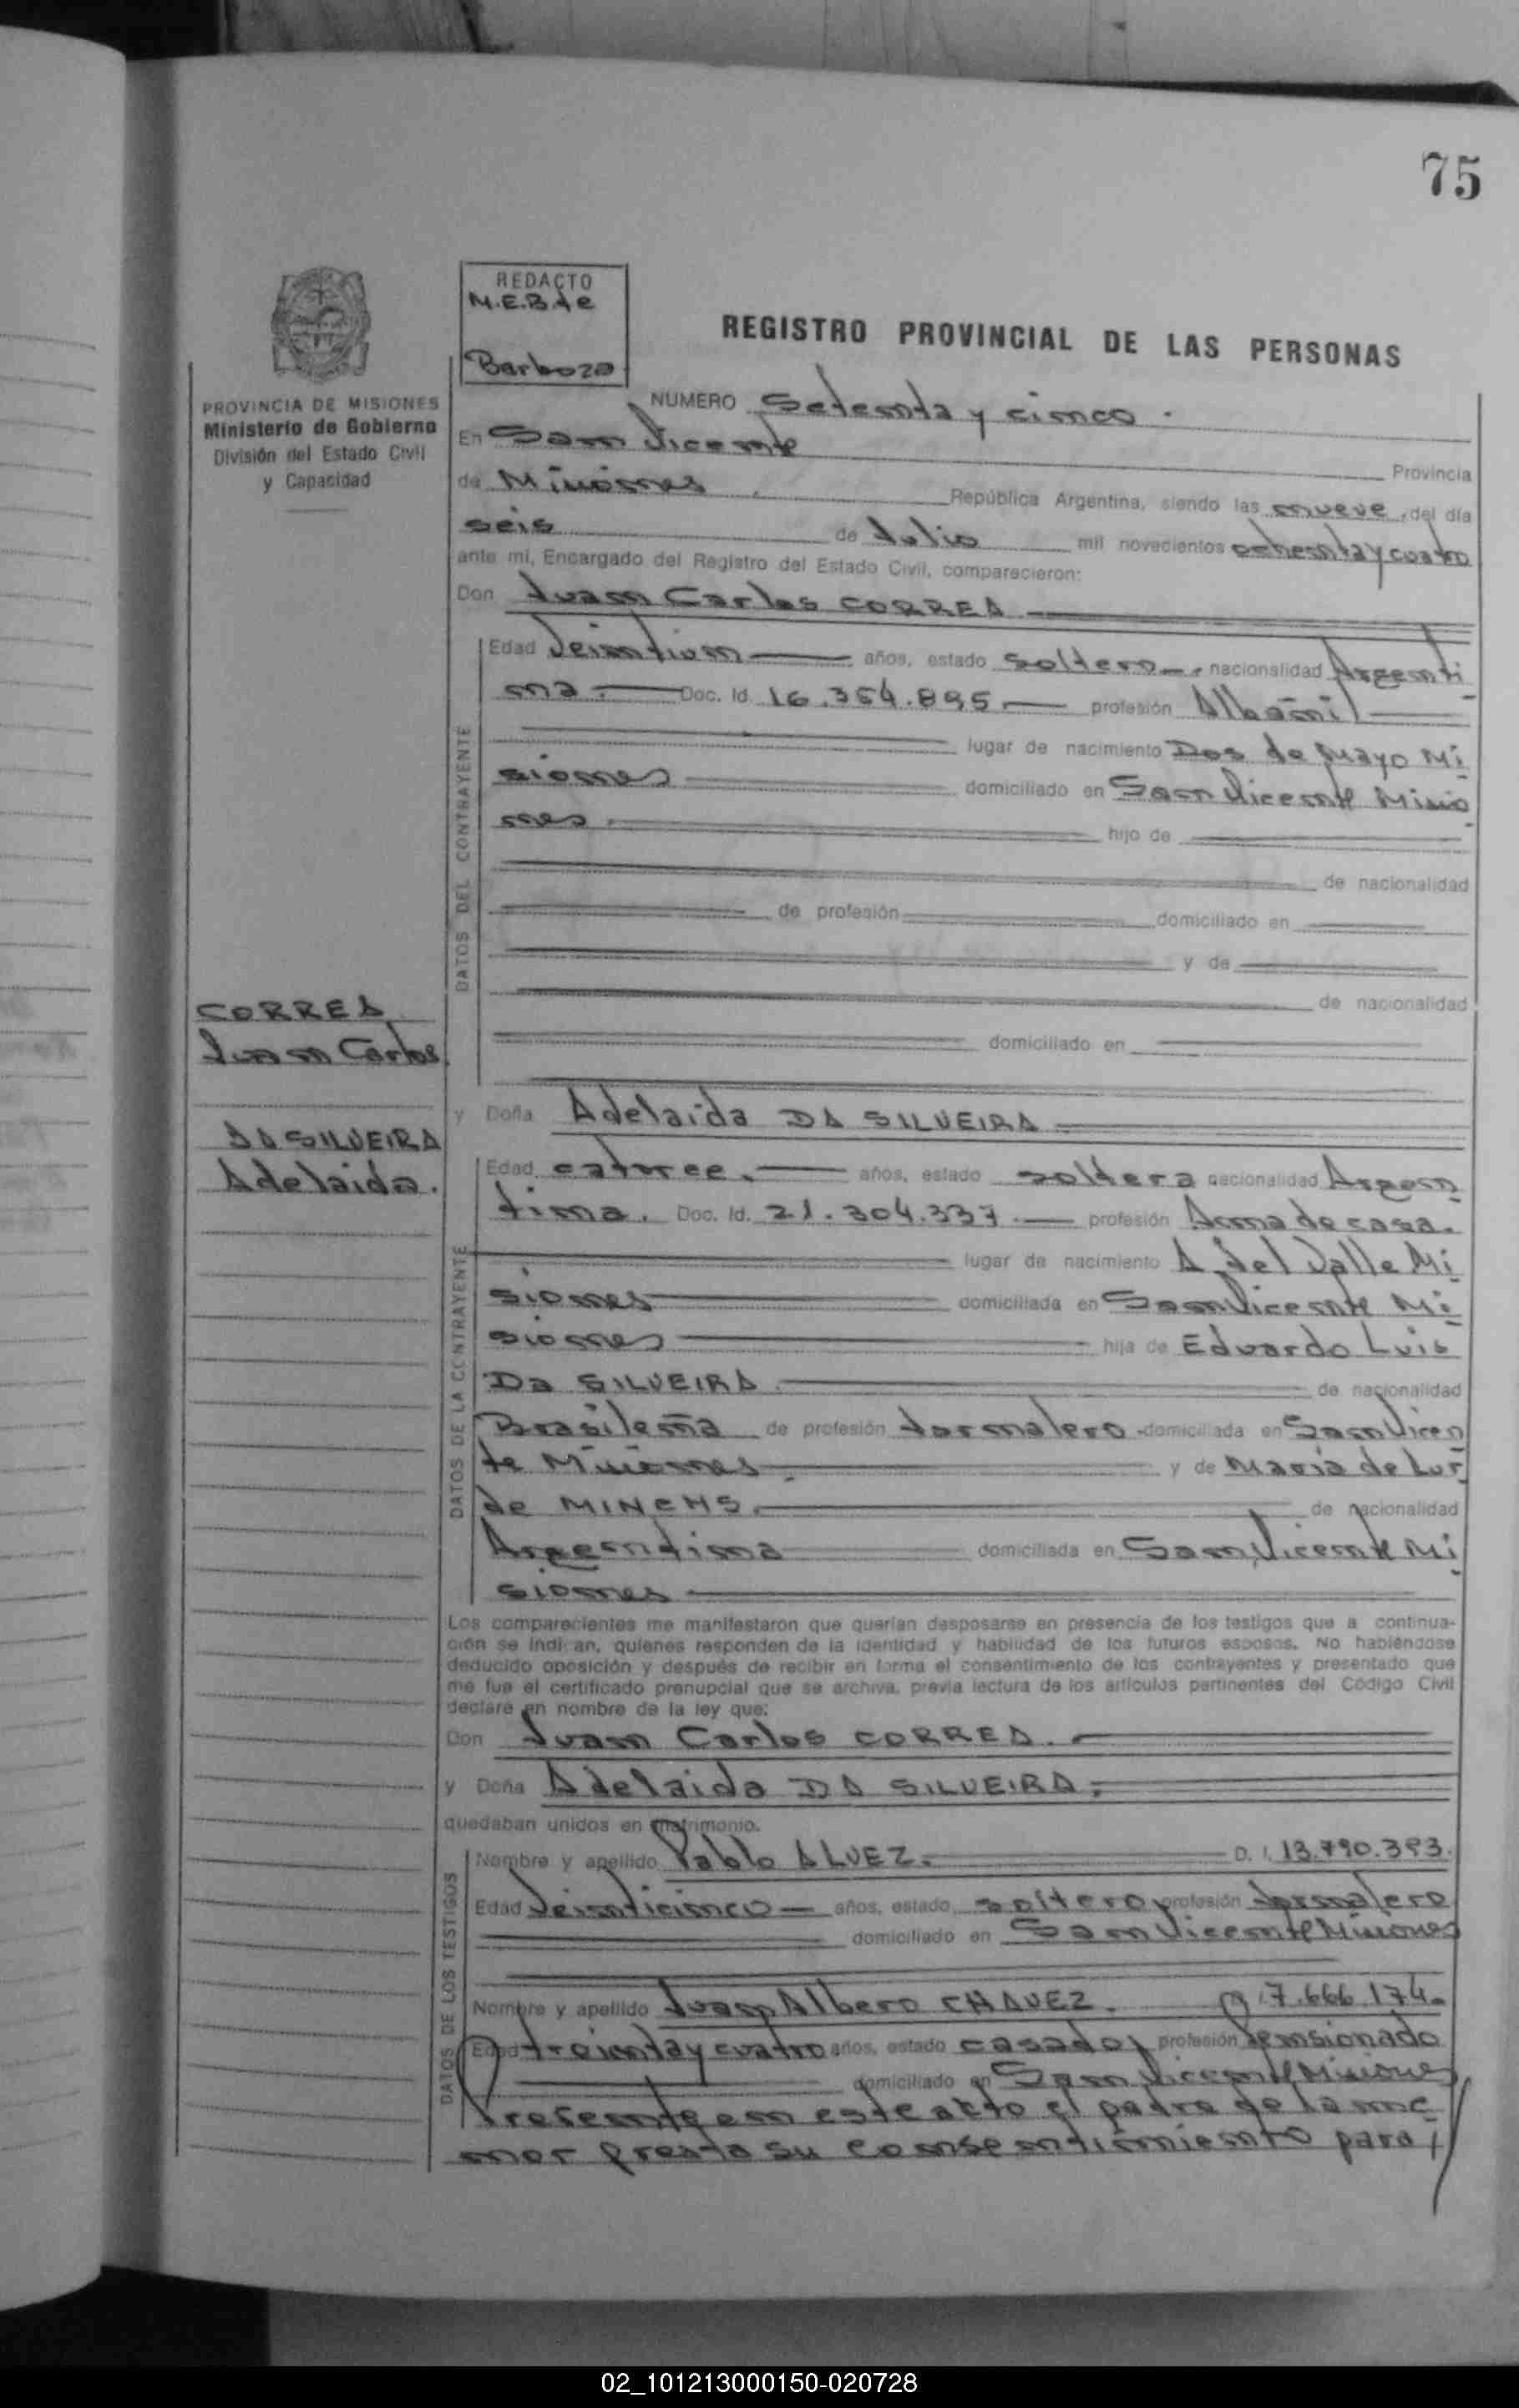 75
REDACTO
M.E.B de
Barboza
REGISTRO PROVINCIAL DE LAS PERSONAS
PROVINCIA DE MISIONES
Ministerio de Gobierno
División del Estado Civil
y Capacidad
NUMERO Setenta y cinco.
En San Vicente Provincia
de Misiones. República Argentina, siendo las nueve, del día
seis de Julio mil novecientos ochenta y cuatro
ante mi, Encargado del Registro del Estado Civil, comparecieron:
Don Juan Carlos CORREA
Edad Veintiun años, estado soltero, nacionalidad Argenti
na. Doc. Id. 16.354.895 profesión Albañil
lugar de nacimiento Dos de Mayo Mi
siones domiciliado en San Vicente Misio
nes. hijo de
de nacionalidad
de profesión domiciliado en
y de
de nacionalidad
domiciliado en
DATOS DEL CONTRAYENTE
CORREA
Juan Carlos
DA SILVEIRA
Adelaida.
y Doña Adelaida DA SILVEIRA
Edad catorce. años, estado soltera nacionalidad Argen
tina. Doc. Id. 21.304.337. profesión Ama de casa.
lugar de nacimiento A del Valle Mi
siones domiciliada en San Vicente Mi
siones hija de Eduardo Luis
Da SILVEIRA de nacionalidad
Brasileña de profesión Jornalero domiciliada en San Vicen
te Misiones. y de Maria de Lur
de MINCHS. de nacionalidad
Argentina domiciliada en San Vicente Mi
siones
DATOS DE LA CONTRAYENTE
Los comparecientes me manifestaron que querían desposarse en presencia de los testigos que a continua-
ción se indican, quienes responden de la identidad y habilidad de los futuros esposos. No habiéndose
deducido oposición y después de recibir en forma el consentimiento de los contrayentes y presentado que
me fue el certificado prenupcial que se archiva, previa lectura de los artículos pertinentes del Código Civil
declaré en nombre de la ley que:
Don Juan Carlos CORREA.
y Doña Adelaida DA SILVEIRA.
quedaban unidos en matrimonio.
Nombre y apellido Pablo ALVEZ. D. I. 13.790.393.
Edad Veinticinco años, estado soltero profesión Jornalero
domiciliado en San Vicente Misiones
Nombre y apellido Juan Albero CHAVEZ. 7.666.174.
Edad treinta y cuatro años, estado casado, profesión Pensionado
domiciliado en San Vicente Misiones
DATOS DE LOS TESTIGOS
Presente en este acto el padre de la me
nor presta su consentimiento para
02_101213000150-020728